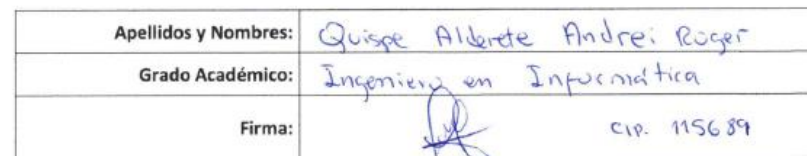 Apellidos y Nombres: Quispe Alderete Andrei Roger
Grado Académico: Ingeniero en Informática
Firma: CIP. 115689